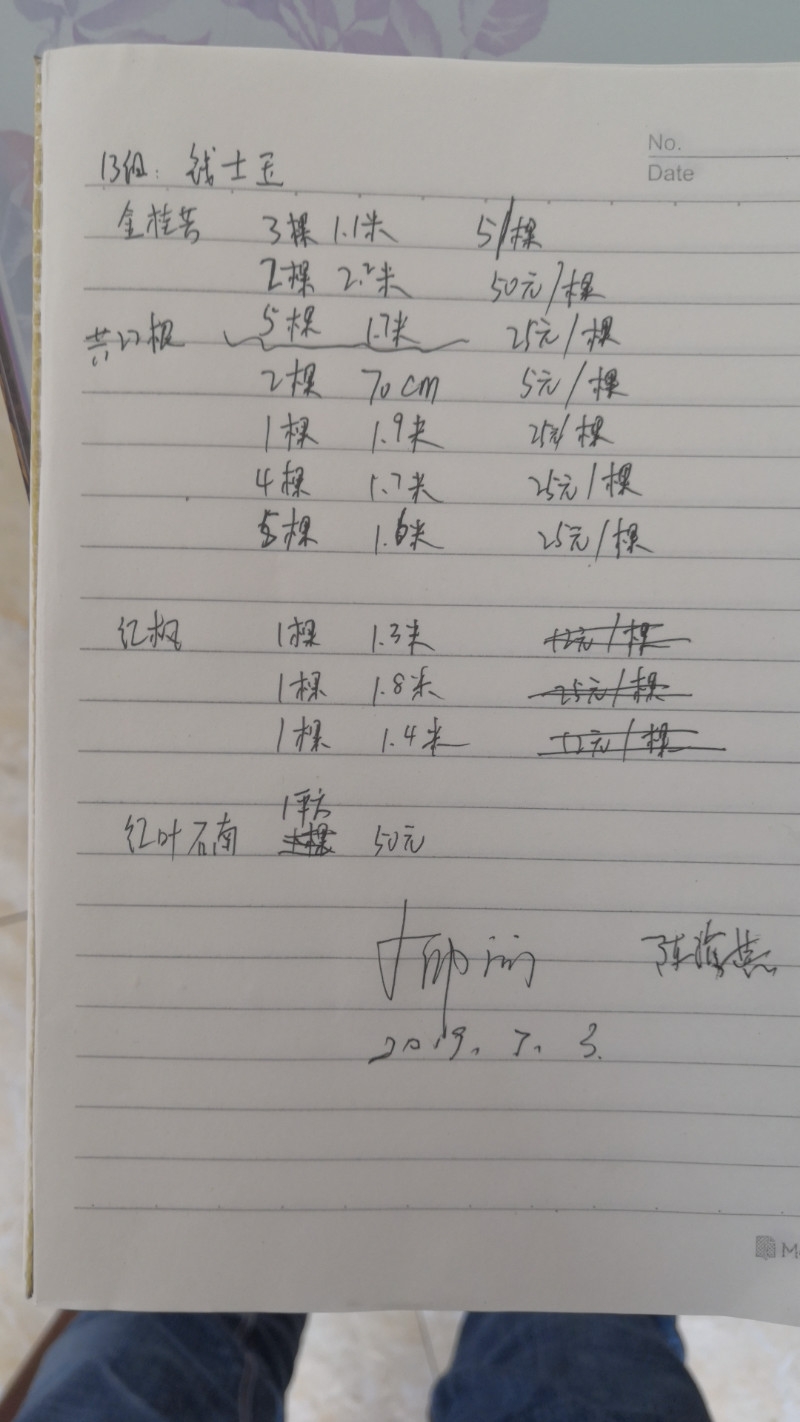 No.
Date
13组：钱士玉
金桂苗 3棵 1.1米 5/棵
2棵 2.2米 50元/棵
共22棵 5棵 1.7米 25元/棵
2棵 70cm 5元/棵
1棵 1.9米 25元/棵
4棵 1.7米 25元/棵
5棵 1.6米 25元/棵
红枫 1棵 1.3米 12元/棵
1棵 1.8米 25元/棵
1棵 1.4米 12元/棵
1平方
红叶石南 50元
2019.7.3.